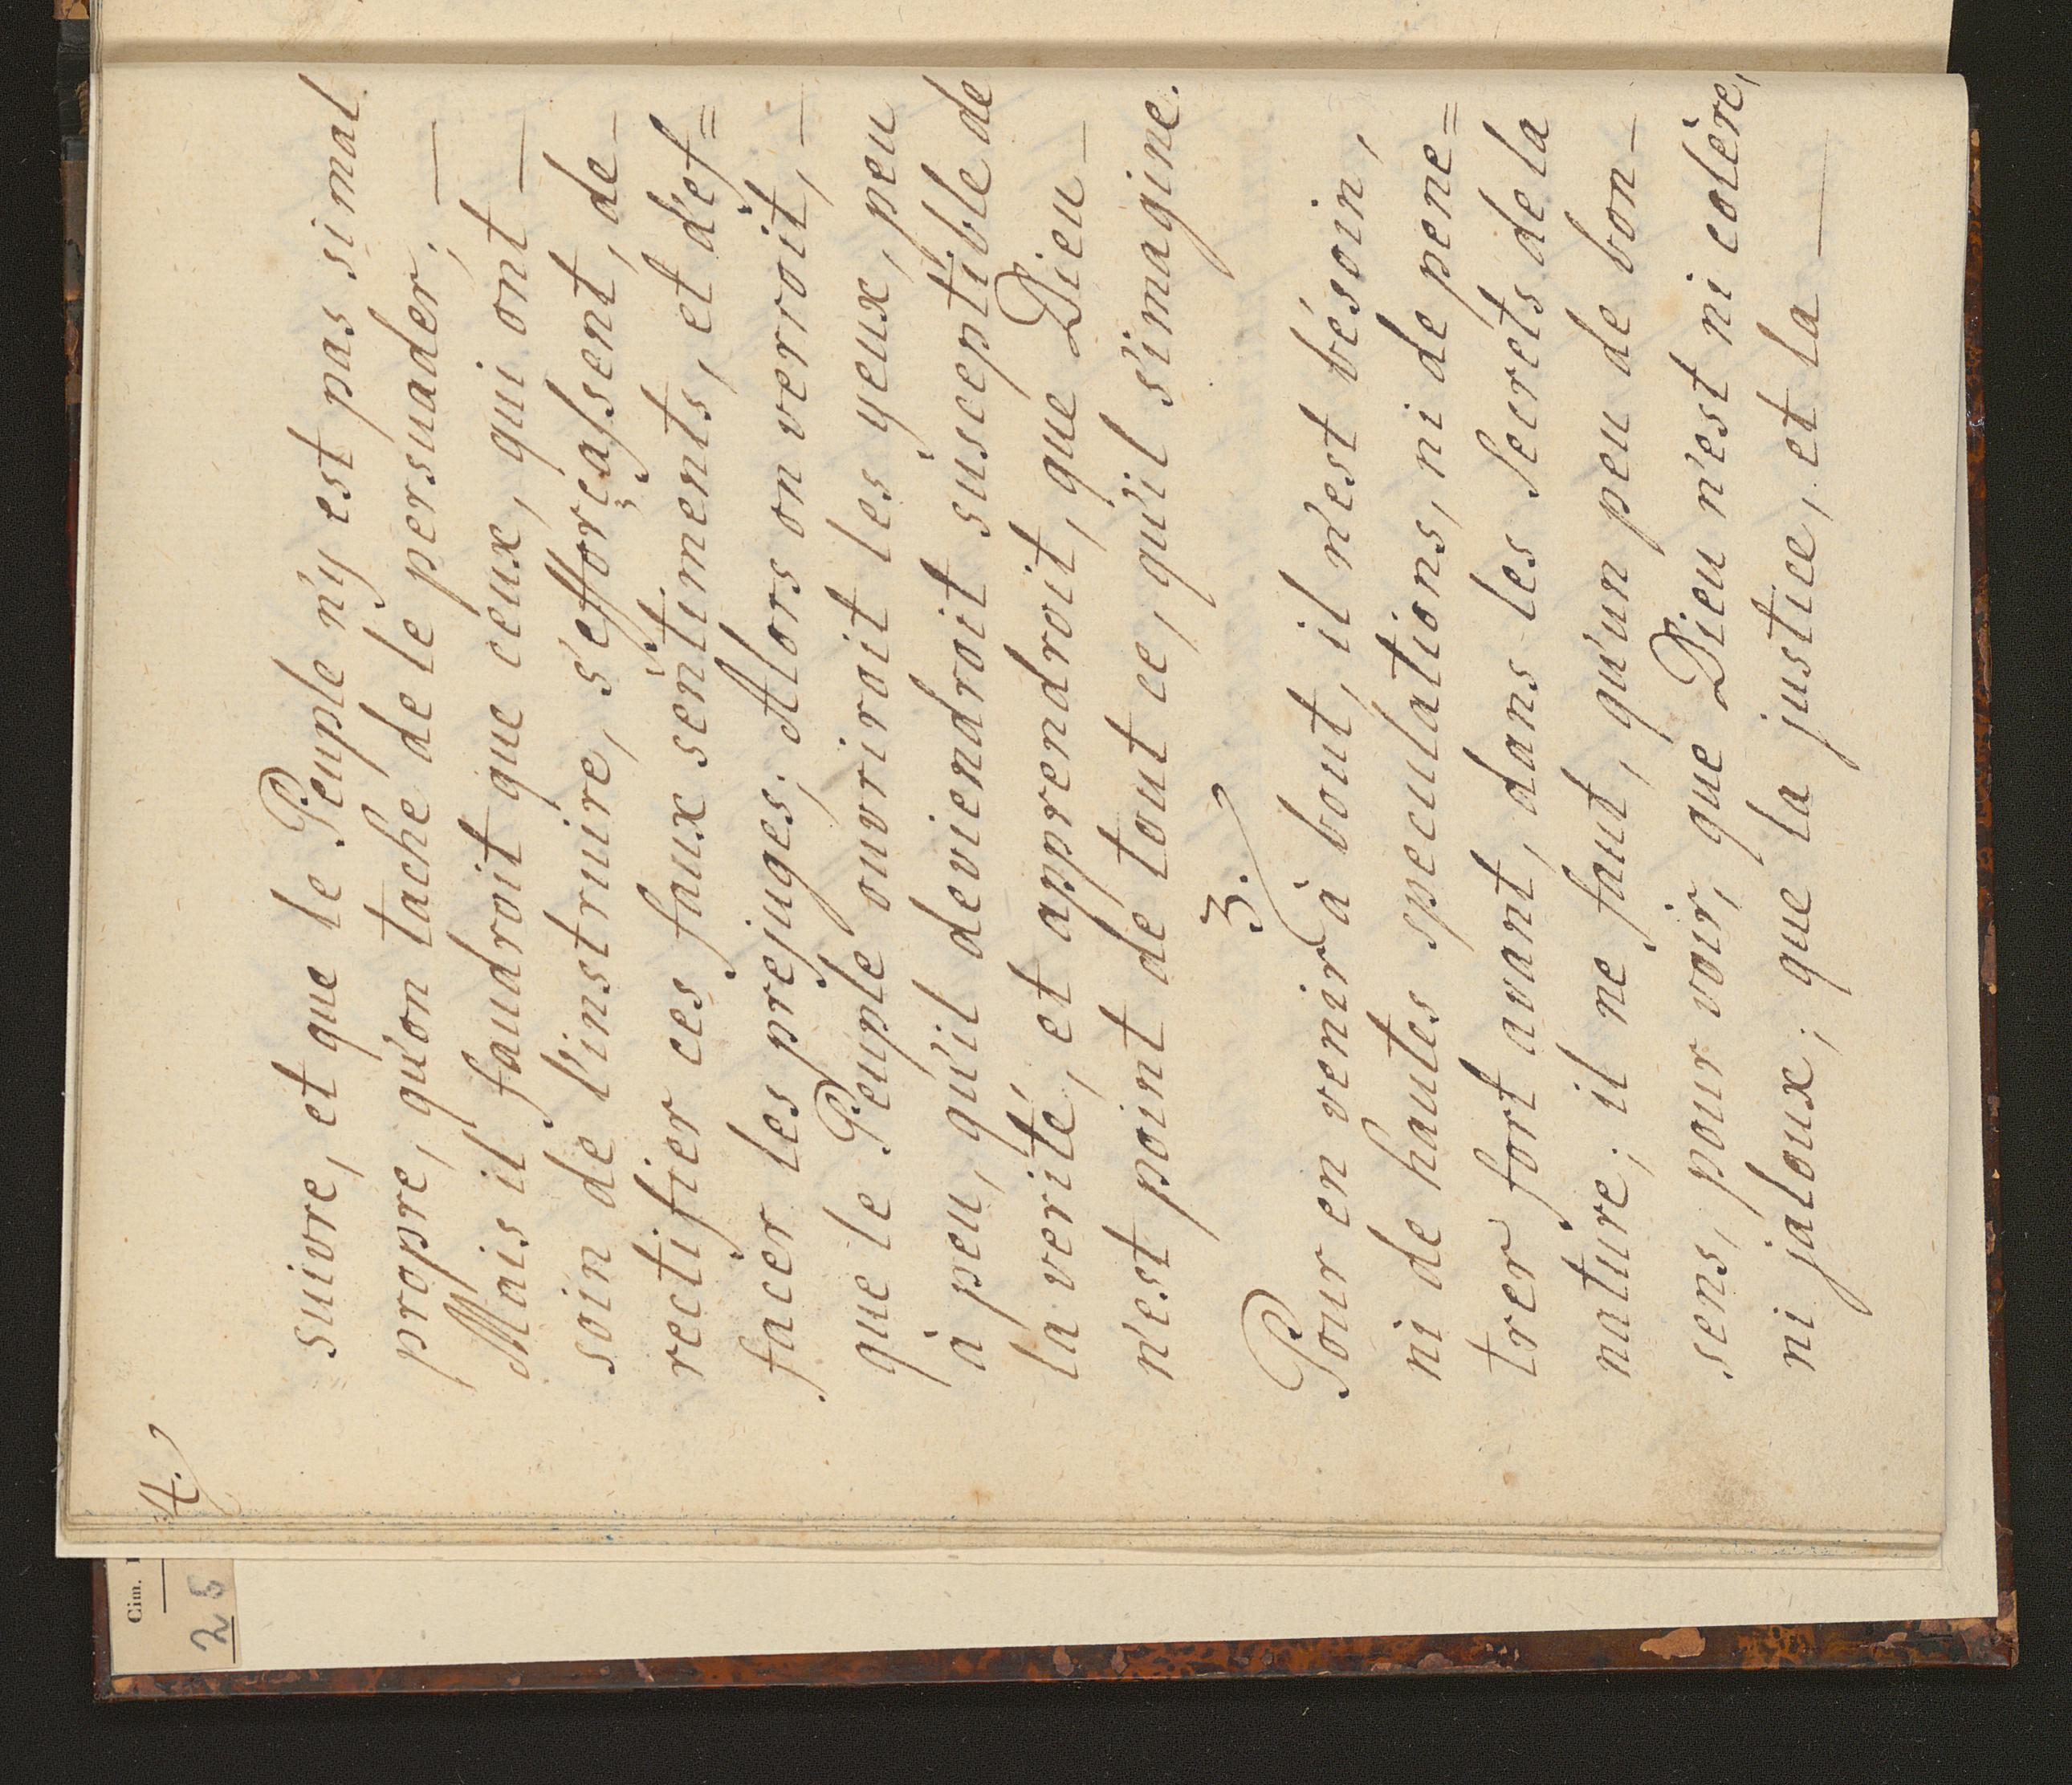 4.
suivre, et que le Peuple n'y est pas si mal
propre, qu'on tache de le persuader; —
Mais il faudroit que ceux, qui ont —
soin de l'instruire, s'efforçassent, de-
rectifier ces faux sentiments, et d'ef=
facer les prejuges; Alors on verroit, —
que le Peuple ouvriroit les yeux, peu
à peu, qu'il deviendroit susceptible de
la verité, et apprendroit, que Dieu —
n'est point de tout ce, qu'il s'imagine.
3.
Pour en venir à bout, il n'est bésoin,
ni de hautes speculations, ni de pene=
trer fort avant, dans les Secrets de la
nature; il ne faut, qu'un peu de bon —
sens, pour voir, que Dieu n'est ni colère,
ni jaloux; que la justice, et la —
Cim.
28